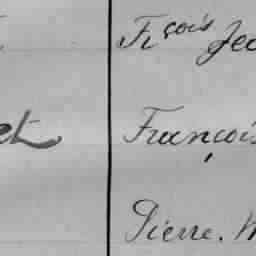 Fr çois Jea
et François
Pierre. M